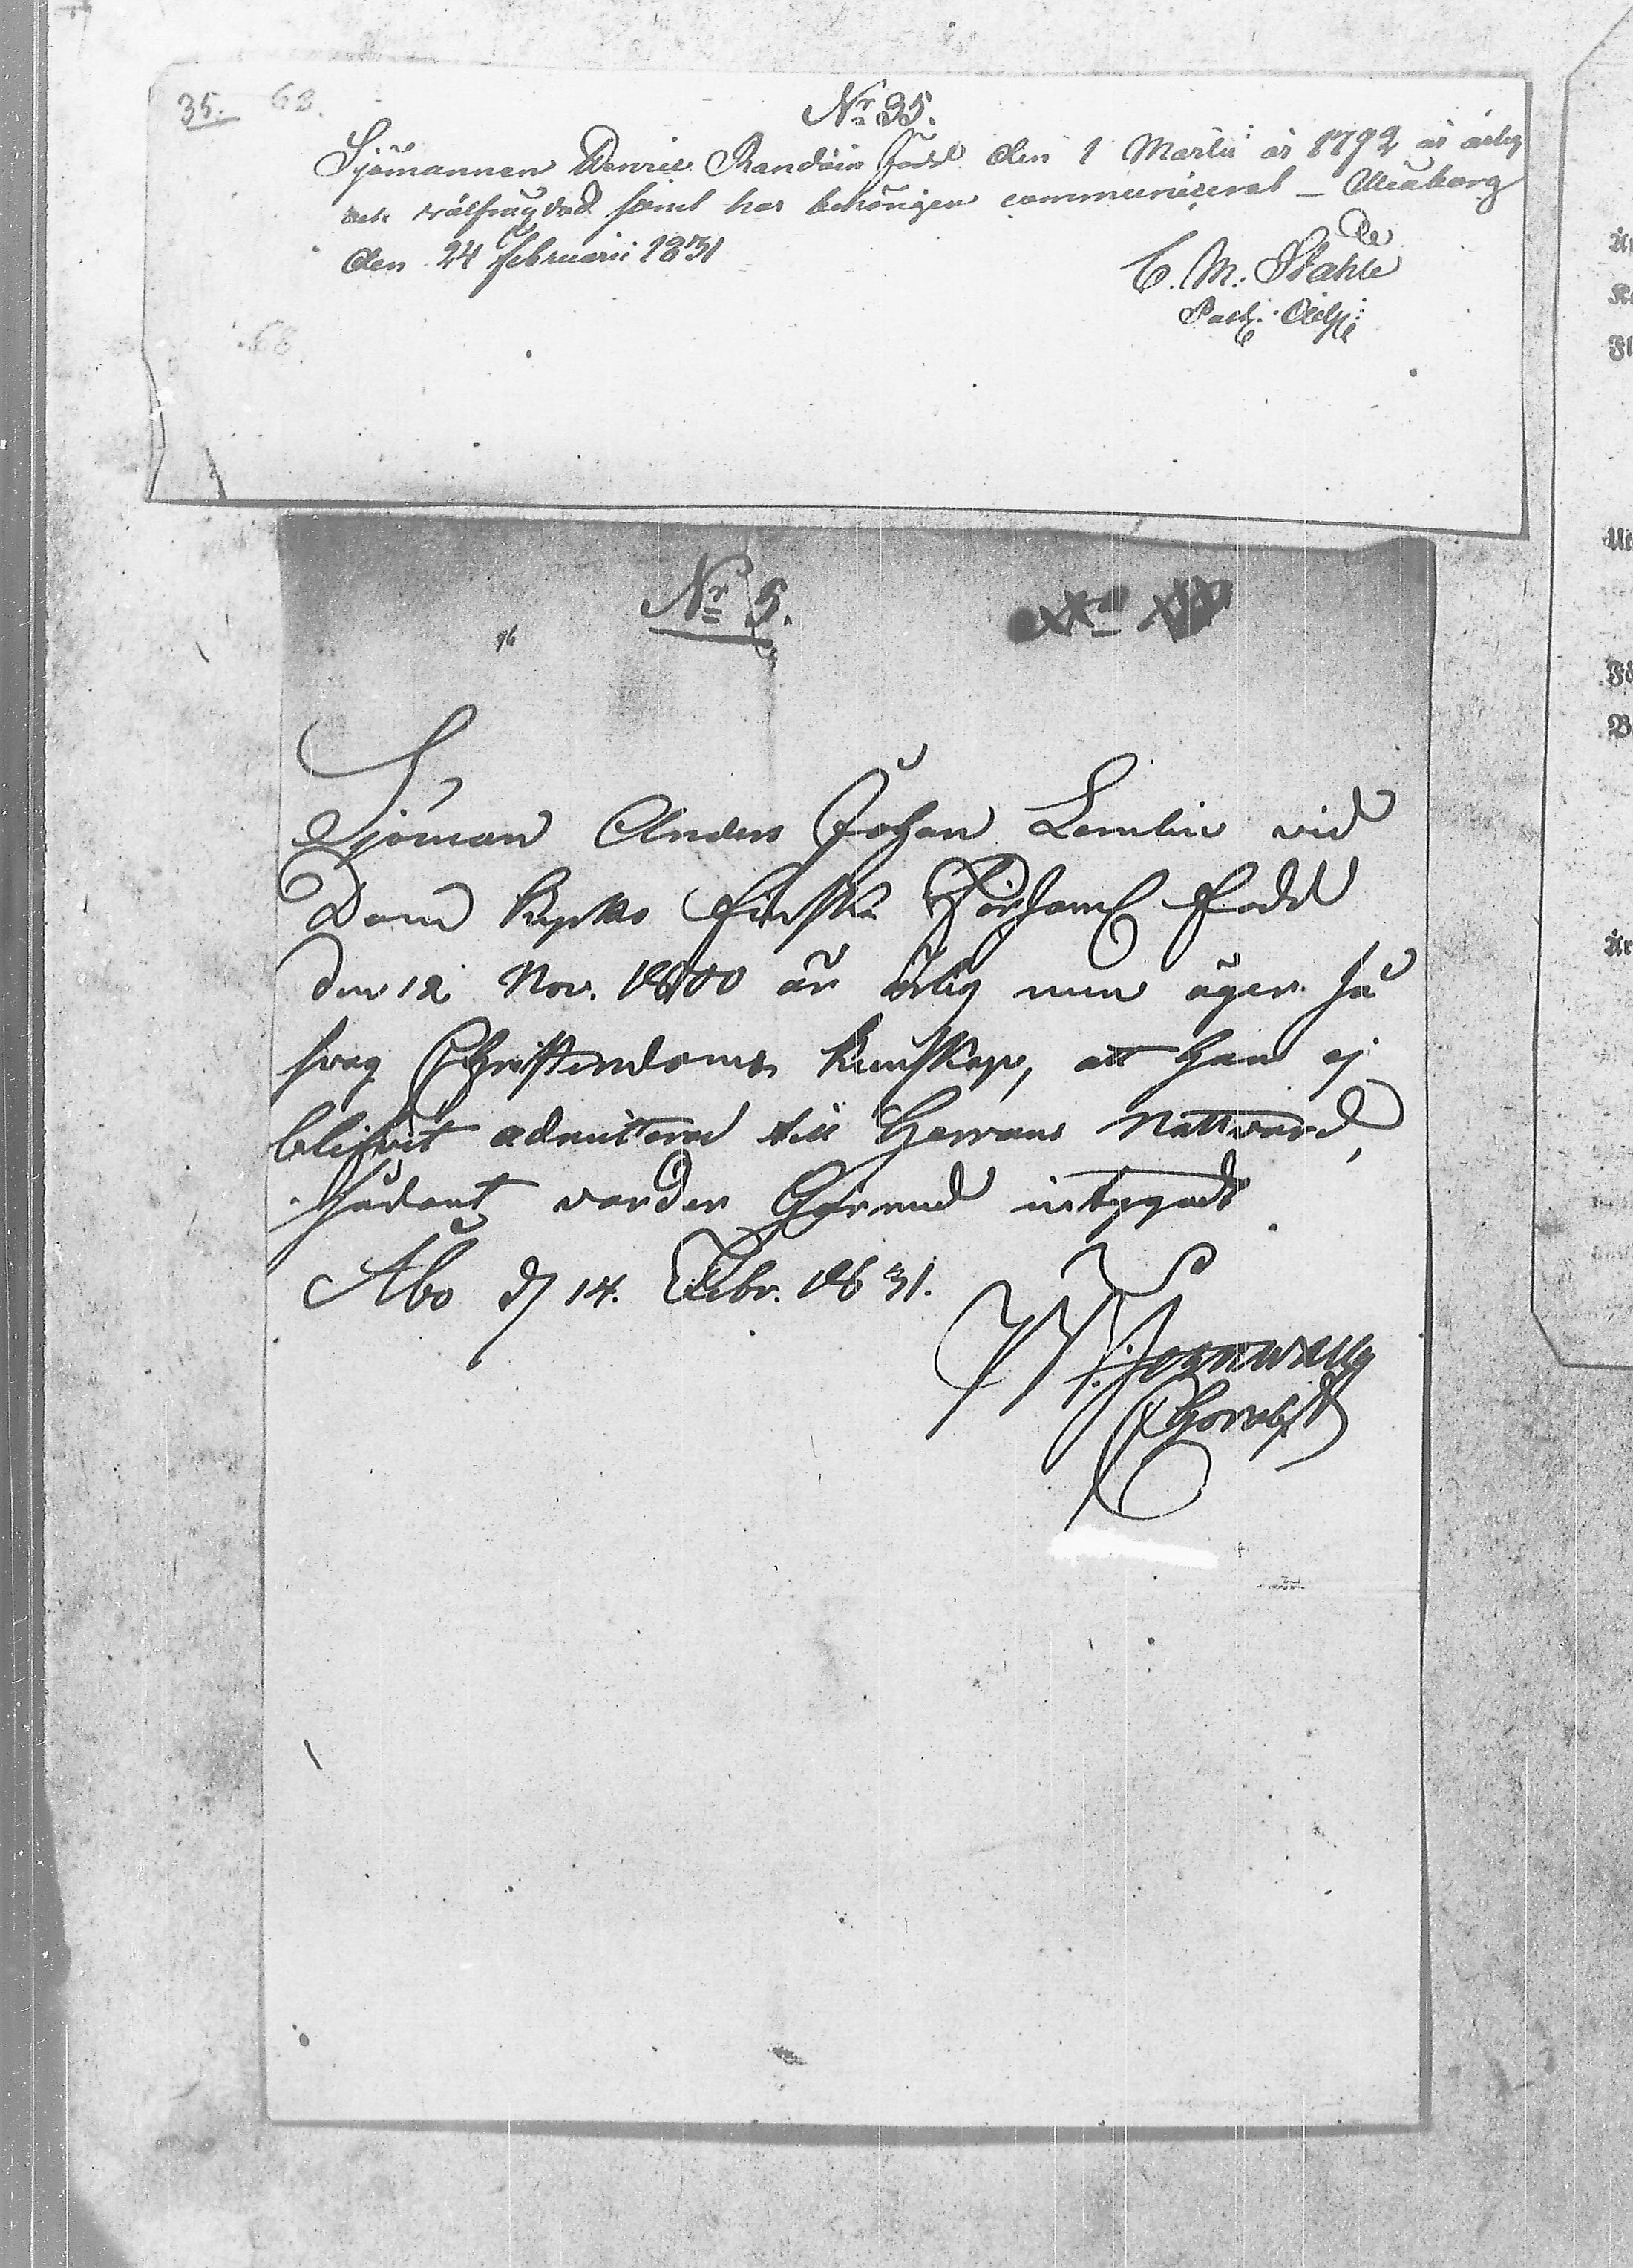 35. 68.
Nr 35.
Sjömannen Henric Randöin född den 1 Martii år 1792 är ärlig
och välfrägdad samt har behörigen communicerat – Uleåborg
den 24 februarii 1831
C. M. Stahle
Past: Adj:
68.
Nr 5.
96
Sjöman Anders Johan Lemlin vid
Dom kyrko finska Förhaml född
den 12 Nov. 1800 är ärlig men äger så
svag Christendoms kunskap, att han ej
blifvit admitterad till Herrans Nattvard,
sådant varder härmed intygadt
Åbo d 14. Febr. 1831.